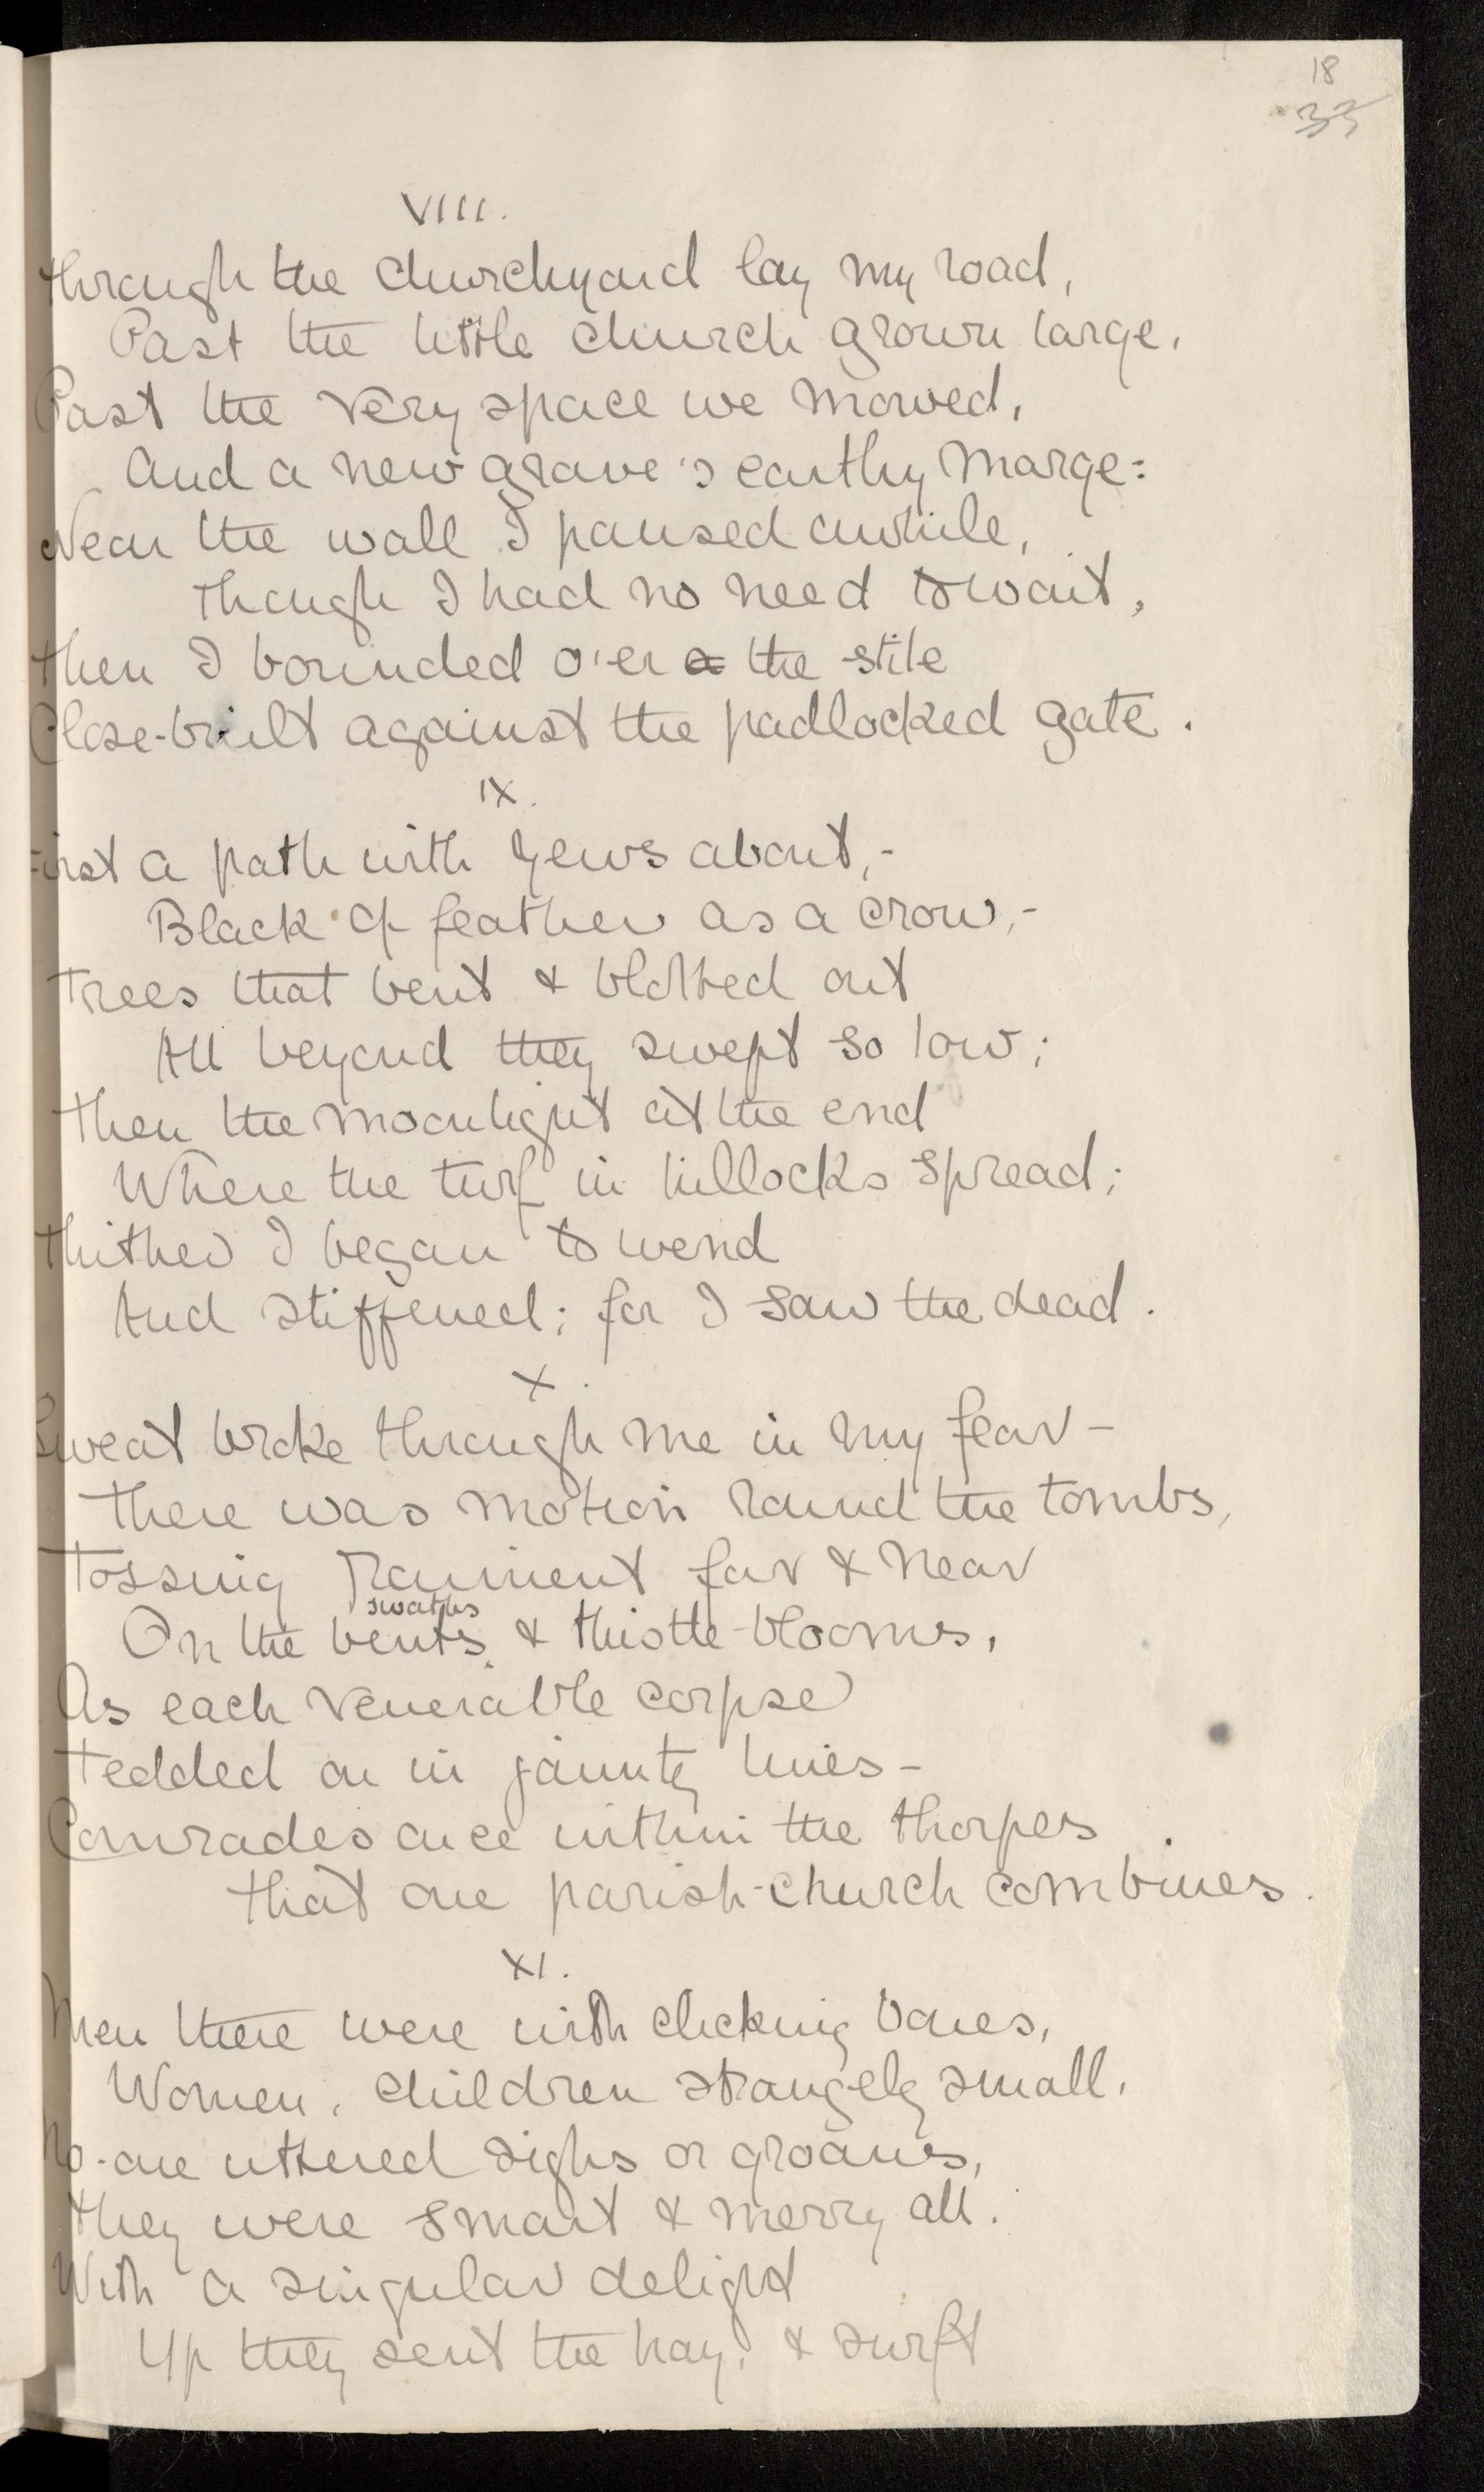 18
33
VIII.
Through the churchyard lay my road,
Past the little church grown large,
Past the very space we mowed,
And a new grave's earthy marge:
Near the wall I paused awhile,
Though I had no need to wait,
Then I bounded o'er a the stile
Close-built against the padlocked gate.
IX.
First a path with yews about,-
Black of feather as a crow,-
Trees that bent & blotted out
All beyond they swept so low;
Then the moonlight at the end
Where the turf in hillocks spread;
Thither I began to wend
And stiffened; for I saw the dead.
X.
Sweat broke through me in my fear -
There was motion round the tombs,
Tossing raiment far & near
swaths
On the bents & thistle-blooms,
As each venerable corpse
Tedded on in jaunty lines -
Comrades once within the thorpes
That one parish-church combines.
XI.
Men there were with clicking bones,
Women, children strangely small,
No-one uttered sighs or groans,
They were smart & merry all.
With a singular delight
Up they sent the hay, & swift